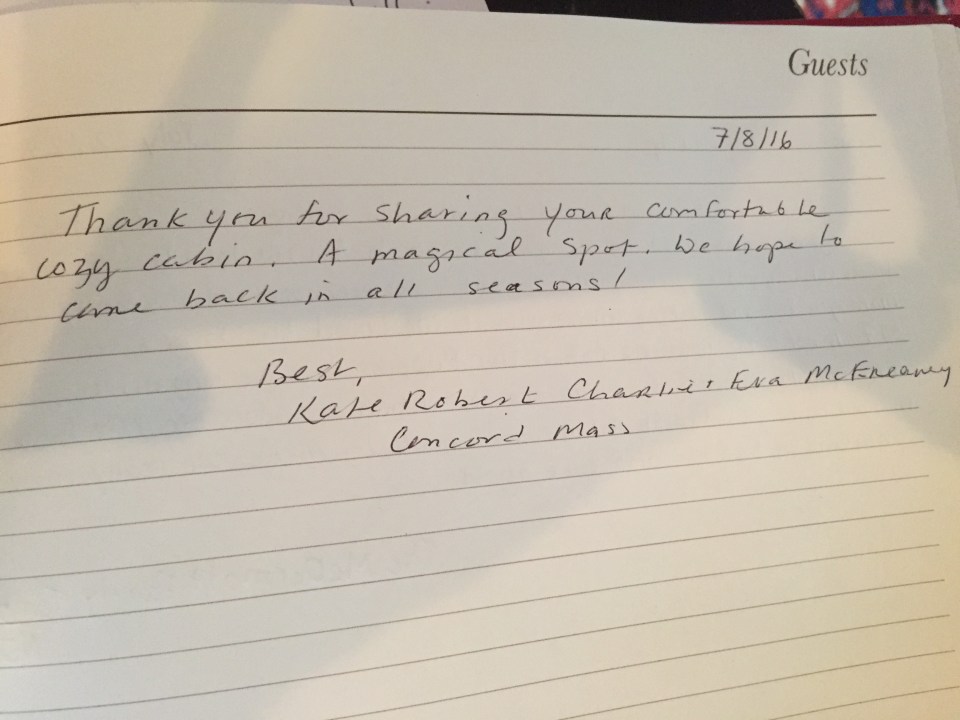 Guests
7/8/16
Thank you for sharing your comfortable
cozy cabin. A magical spot. We hope to
come back in all seasons!
Best,
Kate Robert Charlie & Eva McEneaney
Concord Mass